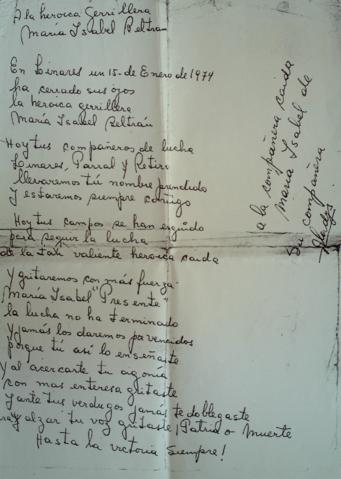 A la heroica Gerrillera
María Isabel Beltrán
En Linares un 15- de Enero de 1974
ha cerrado sus ojos
la heroica gerrillera
María Isabel Beltrán
Hoy tus compañeros de lucha
Linares, Parral y Retiro
llevaremos tú nombre prendido
y estaremos siempre contigo
Hoy tus campos se han erguido
para seguir la lucha
de la tan valiente heroica caida
Y gritaremos con más fuerza-
María Isabel "Presente"
la lucha no ha terminado
y jamás los daremos por vencidos
porque tú asi lo enseñaste
y al acercarte tu agonía
con mas enteresa gritaste
y ante tus verdugos jamás te doblegaste
y al alzar tu voz gritaste ¡Patria o Muerte
Hasta la victoria siempre!
a la compañera caida
María Isabel de
Su compañera